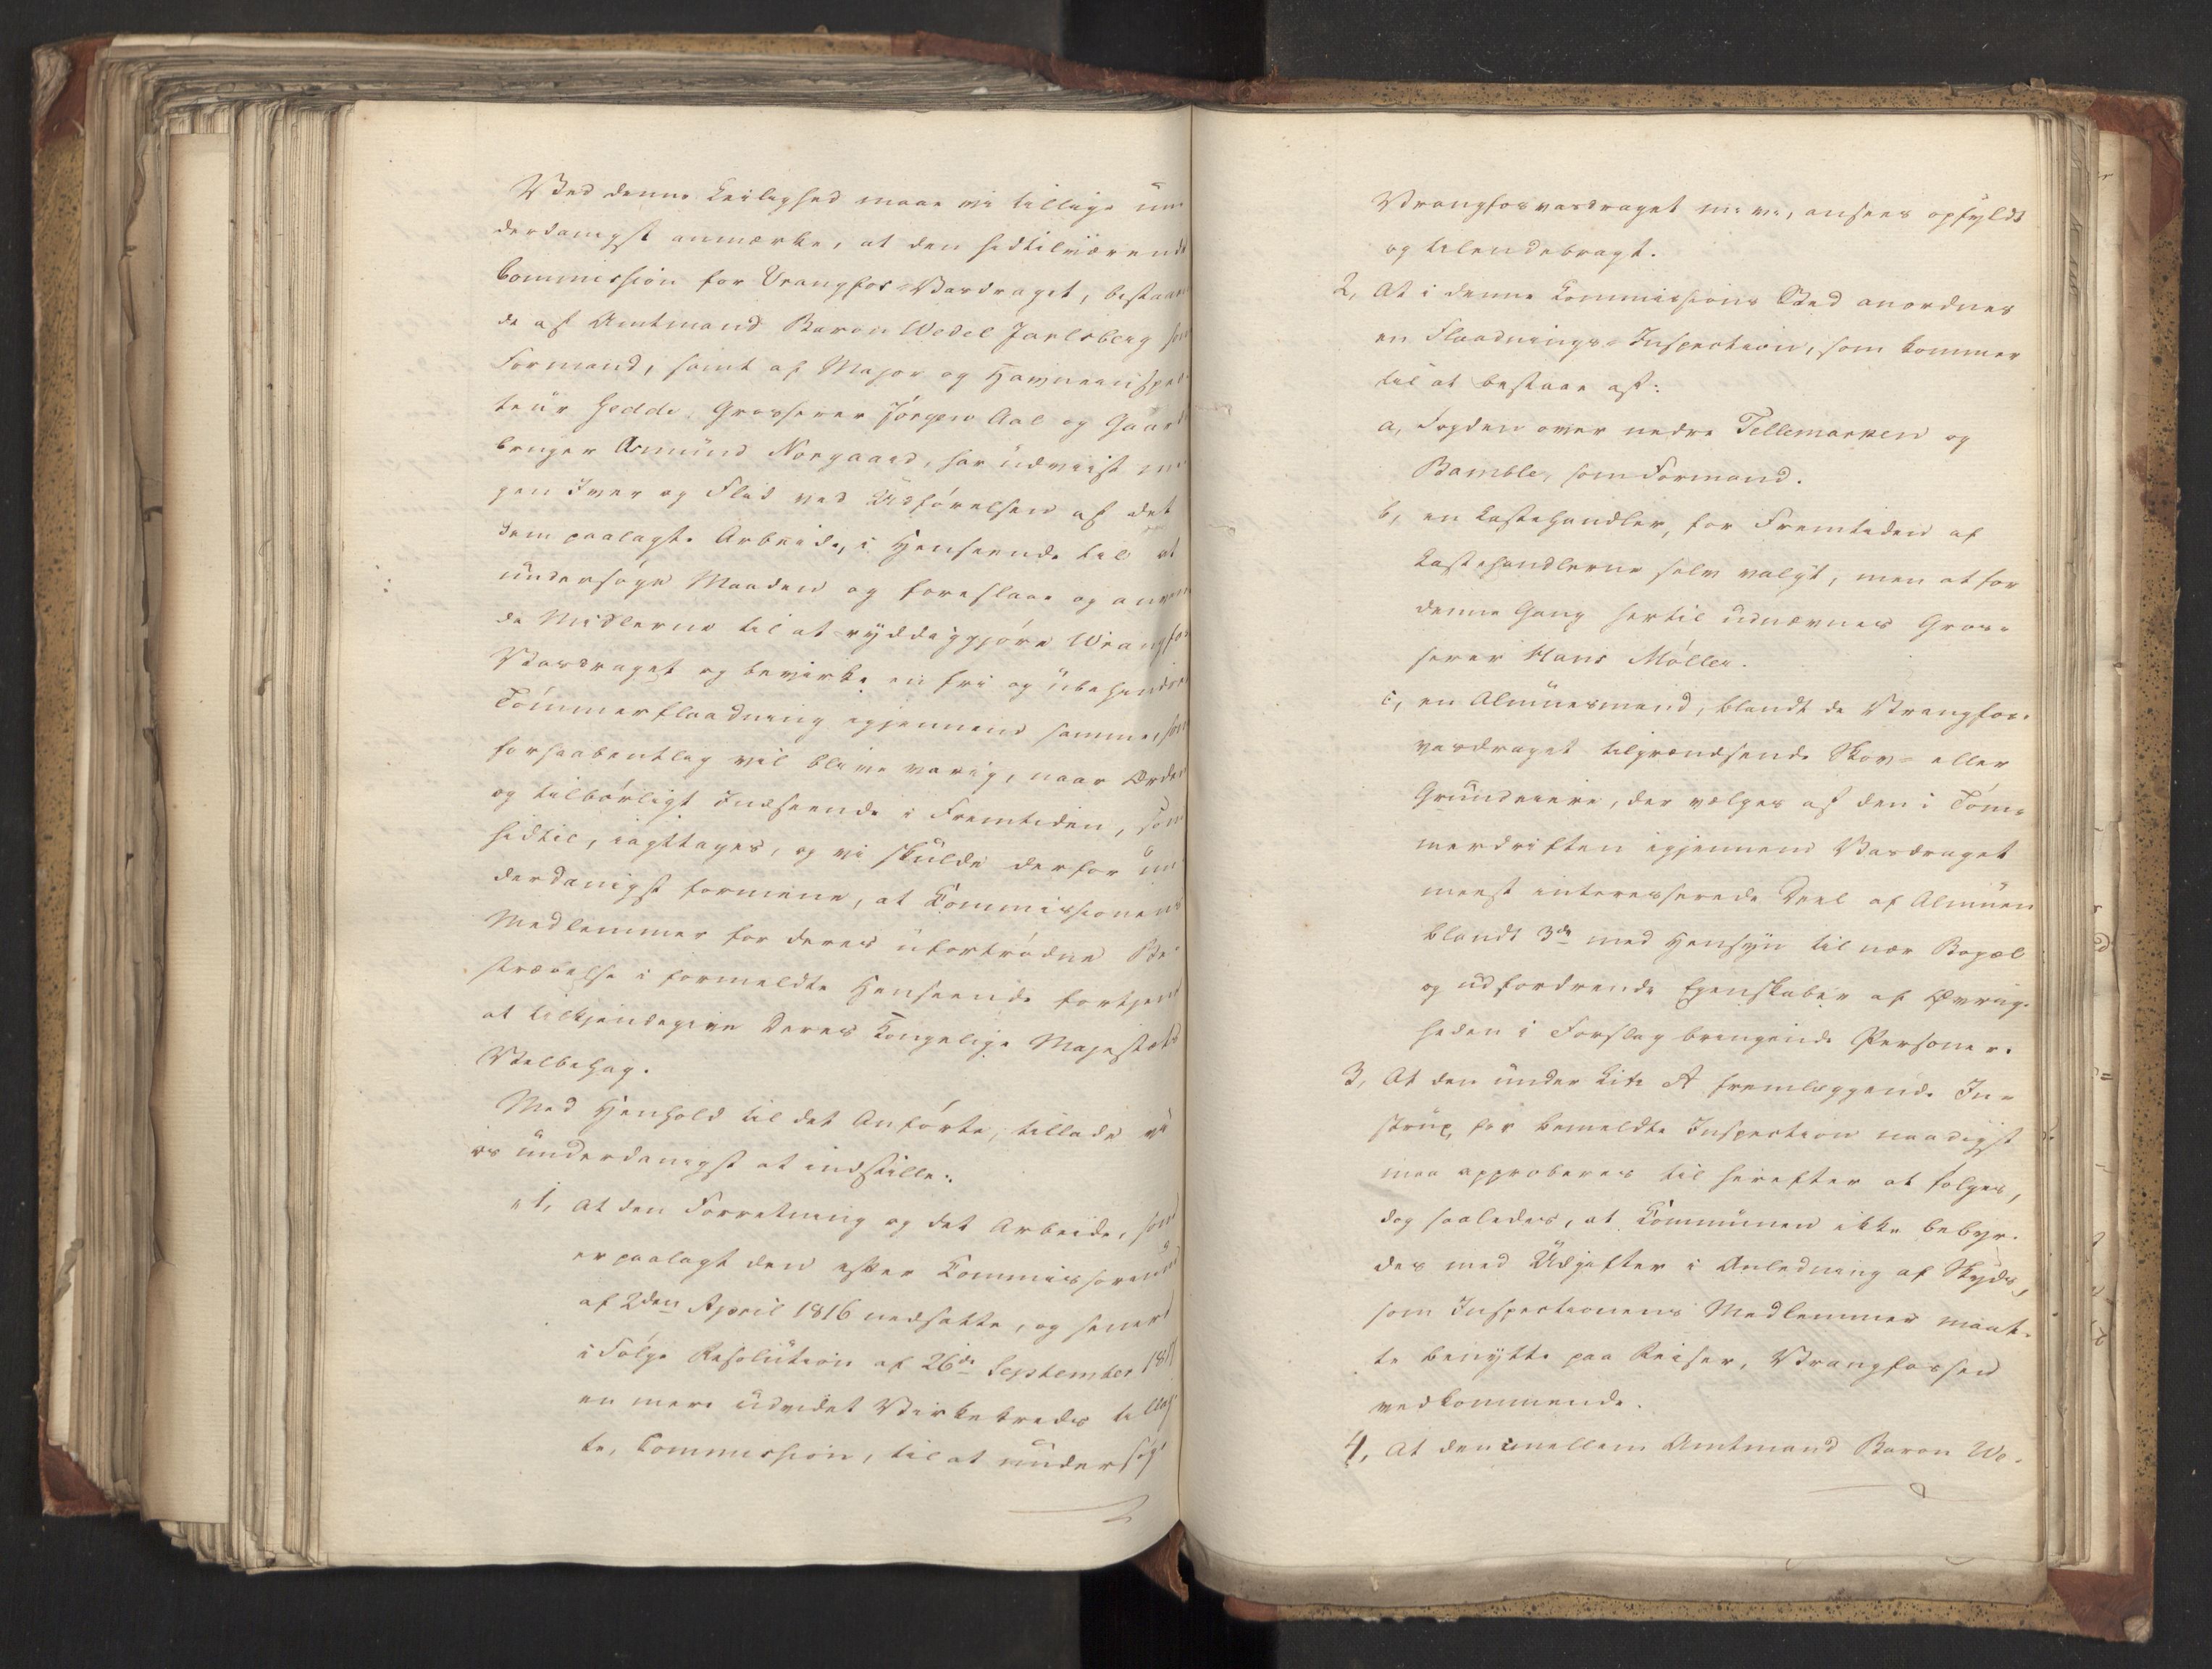 Ved denne Leilighed maae vi tillige un
derdanigst anmærke, at den hidtilværende
Commission for Vrangfos-Vasdraget, bestaaen
de af Amtmand Baron Wedel Jarlsberg som
Formand, samt af Major og Havneinspec
teur Gedde, Grosserer Jörgen Aal og Gaard
bruger Asmund Norgaard, har udviist me
gen Iver og Flid ved Udförelsen af det
dem paalagte Arbeide, i Henseende til at
undersöge Maaden og foreslaae og anven
de Midlerne til at ryddiggjöre Wrangfos
Vasdraget og bevirke en fri og ubehindret
Tömmerflaadning igjennem samme, som
forhaabentlig vil blive varig, naar Orden
og tilbörligt Indseende i Fremtiden, som
hidtil, iagttages, og vi skulde derfor un
derdanigst formene, at Commissionens
Medlemmer for deres ufortrödne Be-
stræbelse i formeldte Henseende fortjene
at tilkjendegive Deres Kongelige Majestæts
Velbehag.
Med Henhold til det Anförte, tillade vi
os underdanigst at indstille:
"1, At den Forretning og det Arbeide, som
er paalagt den efter Commissorium
af 2den April 1816 nedsatte, og senere
i Fölge Resolution af 26de September 18
en mere udvidet Virkekreds tillag
te, Commission, til at undersöge
Vrangfosvasdraget m: v:, ansees opfyldt
og tilendebragt.
2, At i denne Commissions Sted anordnes
en Flaadnings-Inspection, som kommer
til at bestaae af:
a, Fogden over nedre Tellemarken og
Bamble, som Formand.
b, en Lastehandler, for Fremtiden af
Lastehandlerne selv valgt, men at for
denne Gang hertil udnævnes Gros-
serer Hans Möller.
c, en Almuesmand, blandt de Vrangfos-
vasdraget tilgrændsende Skov- eller
Grundeiere, der vælges af den i Töm-
merdriften igjennem Vasdraget
meest interesserede Deel af Almuen
blandt 3de med Hensyn til nær Bopæl
og udfordrende Egenskaber af Øvrig-
heden i Forslag bringende Personer.
3, At den under Litr A fremlæggende In-
strux for bemeldte Inspection naadigst
maa approberes til herefter at fölges,
dog saaledes, at Communen ikke bebyr-
des med Udgifter i Anledning af Skyds,
som Inspectionens Medlemmer maat-
te benytte paa Reiser, Vrangfossen
vedkommende.
4, At den imellem Amtmand Baron We-